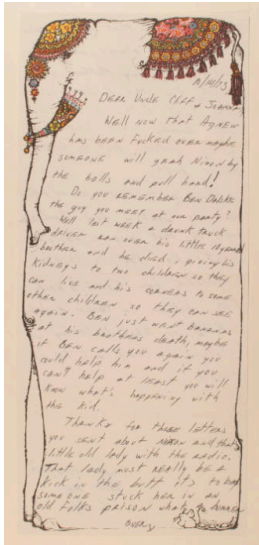 10/10/73
Dear Uncle Cliff &
Well now that Agnew
has been fucked over maybe
someone will grab Nixon by
the balls and pull hard!
Do you remember Ben
the guy you meet at our party?
Well last week a drunk truck
driver ran over his little
brother and he died, giving his
kidneys to two children so they
can live and his corneas to some
other children so they can see
again. Ben just went bananas
at his brothers death, maybe
if Ben calls you again you
could help him and if you
can't help at least you will
know what's happening with
the kid.
Thanks for those letters
you sent about Nixon and that
little old lady with the radio.
That lady must really be a
kick in the butt its to bad
someone stuck her in an
old folks prison what a bummer
over